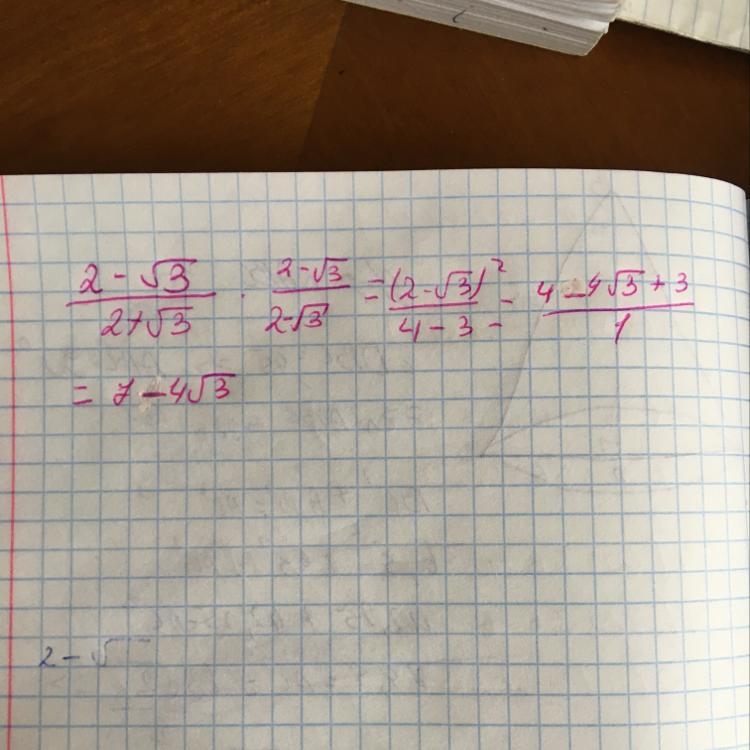 (2 - √3)/(2 + √3) · (2 - √3)/(2 - √3) = (2 - √3)²/(4 - 3) = (4 - 4√3 + 3)/1
= 7 - 4√3
2 - √